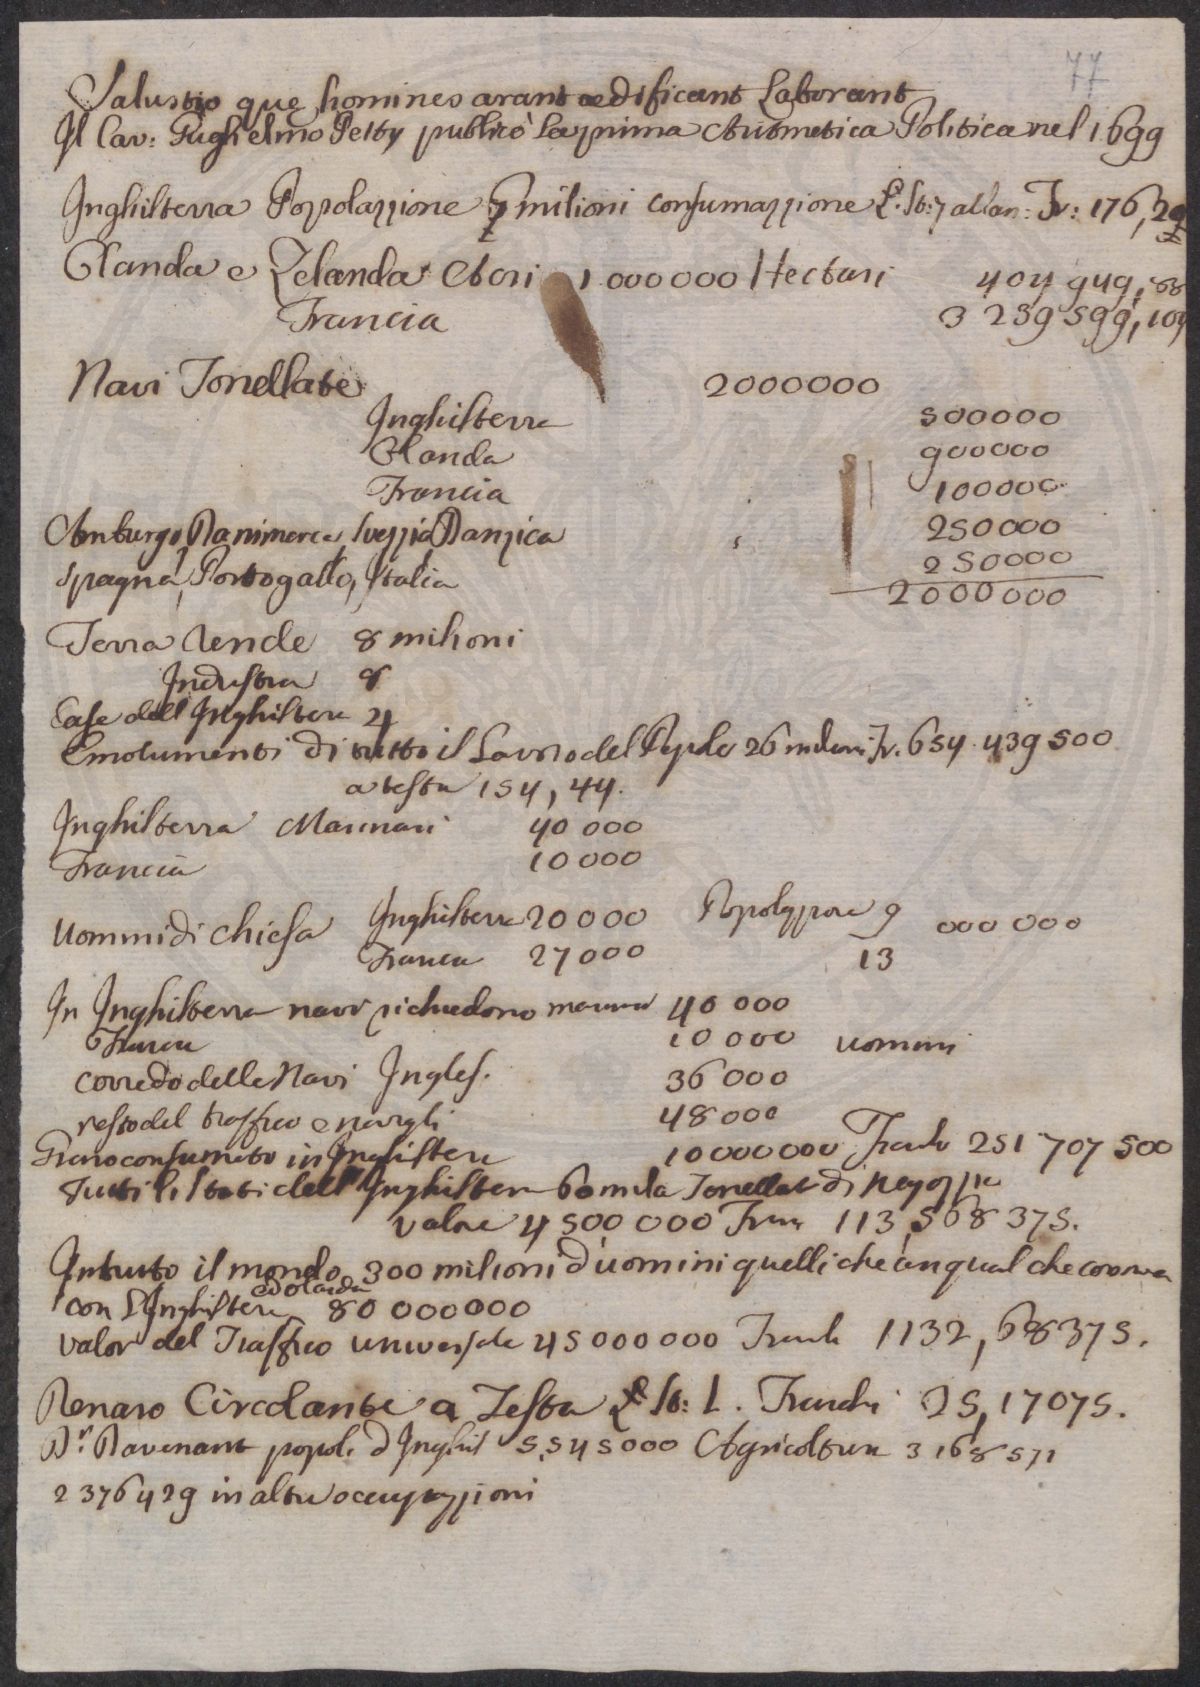 77
Salustio que homines arant ædificant Laborant
Il Cav: Guglielmo Petty publicò la prima Aritmetica Politica nel 1699
Inghilterra Popolazzione 7 milioni consumazzione £. st: 7 all'an: Fr: 176, 2
Olanda e Zelanda Acori 1 000000 Hectari 404 949, 88
Francia 3 239 599, 104
Navi Tonellate 2000000
Inghilterra 500000
Olanda 900000
Francia 100000
Amburgo, Danimarca, Svezzia Danzica 250000
Spagna, Portogallo, Italia 250000
2000000
Terra Rende 8 milioni
Industria 8
Case dell Inghilterra 4
Emolumenti di tutto il Lavoro del Popolo 26 milioni Fr. 654 439 500
a testa 154, 44.
Inghilterra Marinari 40 000
Francia 10 000
Uomini di chiesa Inghilterra 20000 Popolazzione 9 000 000
Francia 27000 13
In Inghilterra navi richiedono marinari 40 000
Francia 10 000 uomini
corredo delle Navi Ingles. 36 000
resto del traffico e navigli 48 000
Grano consumato in Inghilterra 10000000 Franchi 251 707 500
Tutti li Stati dell Inghilterra 60 mila Tonellate di Negozzio
valore 4 500 000 Fran 113,568 375.
In tutto il mondo 300 milioni d'uomini quelli che anqualche
con l'Inghilterra ed Olanda 80 000000
Valor del Traffico universale 45000000 Franchi 1132, 68375.
Denaro Circolante a Testa £ St: 1. Franchi 25, 17075.
Dr. Davenant popoli d'Inghil 5,545000 Agricoltura 3 168 571
2 376 429 in altre occupazzioni